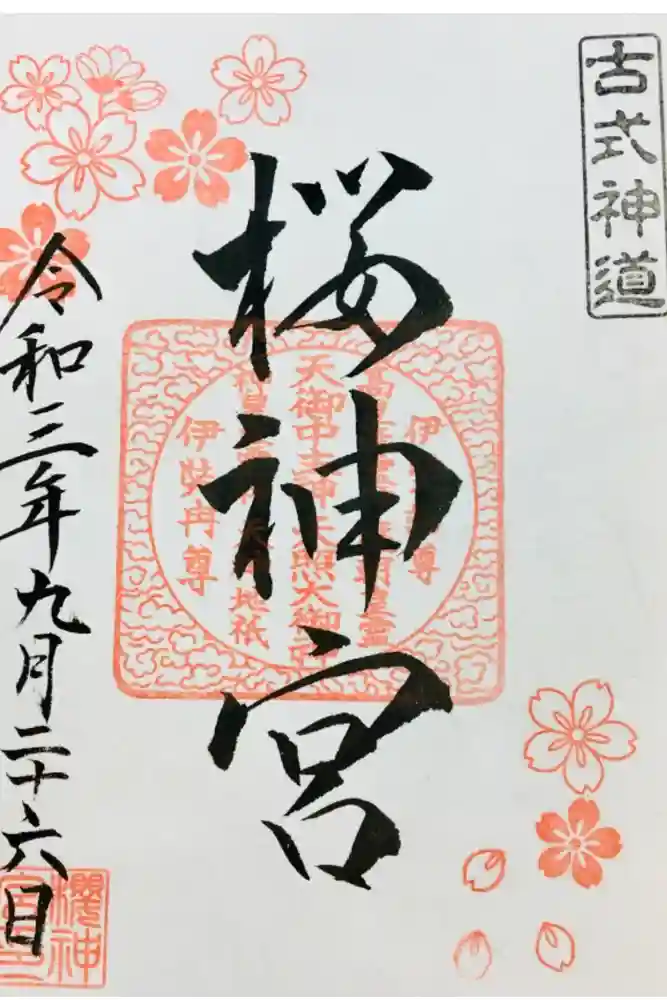 古式神道
桜神宮
伊 尊
天御中主神 天照大御神
地祇
伊弉冉尊
令和三年九月二十六日
櫻神